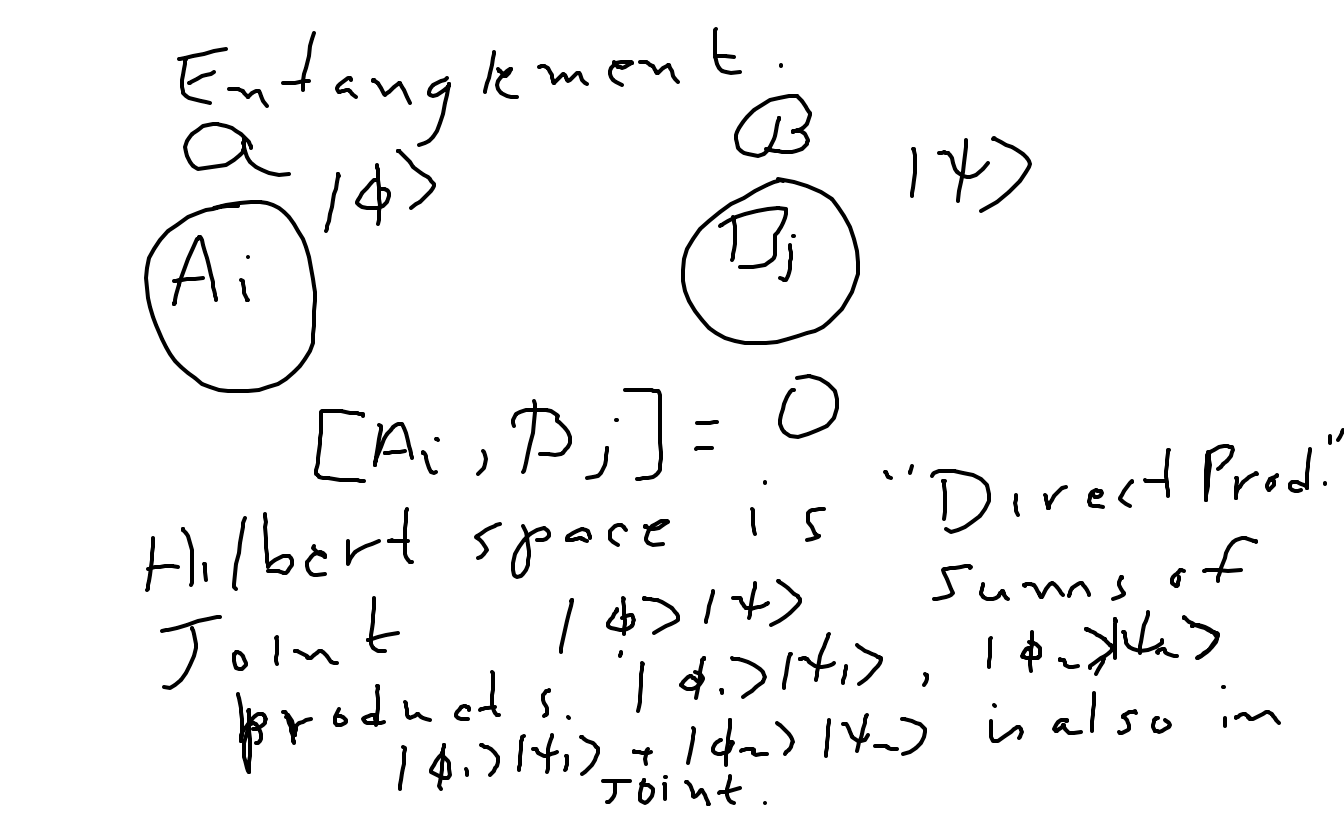 Entanglement.
a B
|ϕ> |ψ>
Ai Bj
[Ai, Bj] = 0
Hilbert space is "Direct Prod."
Joint |ϕ>|ψ> sums of
products. |ϕ₁>|ψ₁>, |ϕ₂>|ψ₂>
|ϕ₁>|ψ₁> + |ϕ₂>|ψ₂> is also in
Joint.